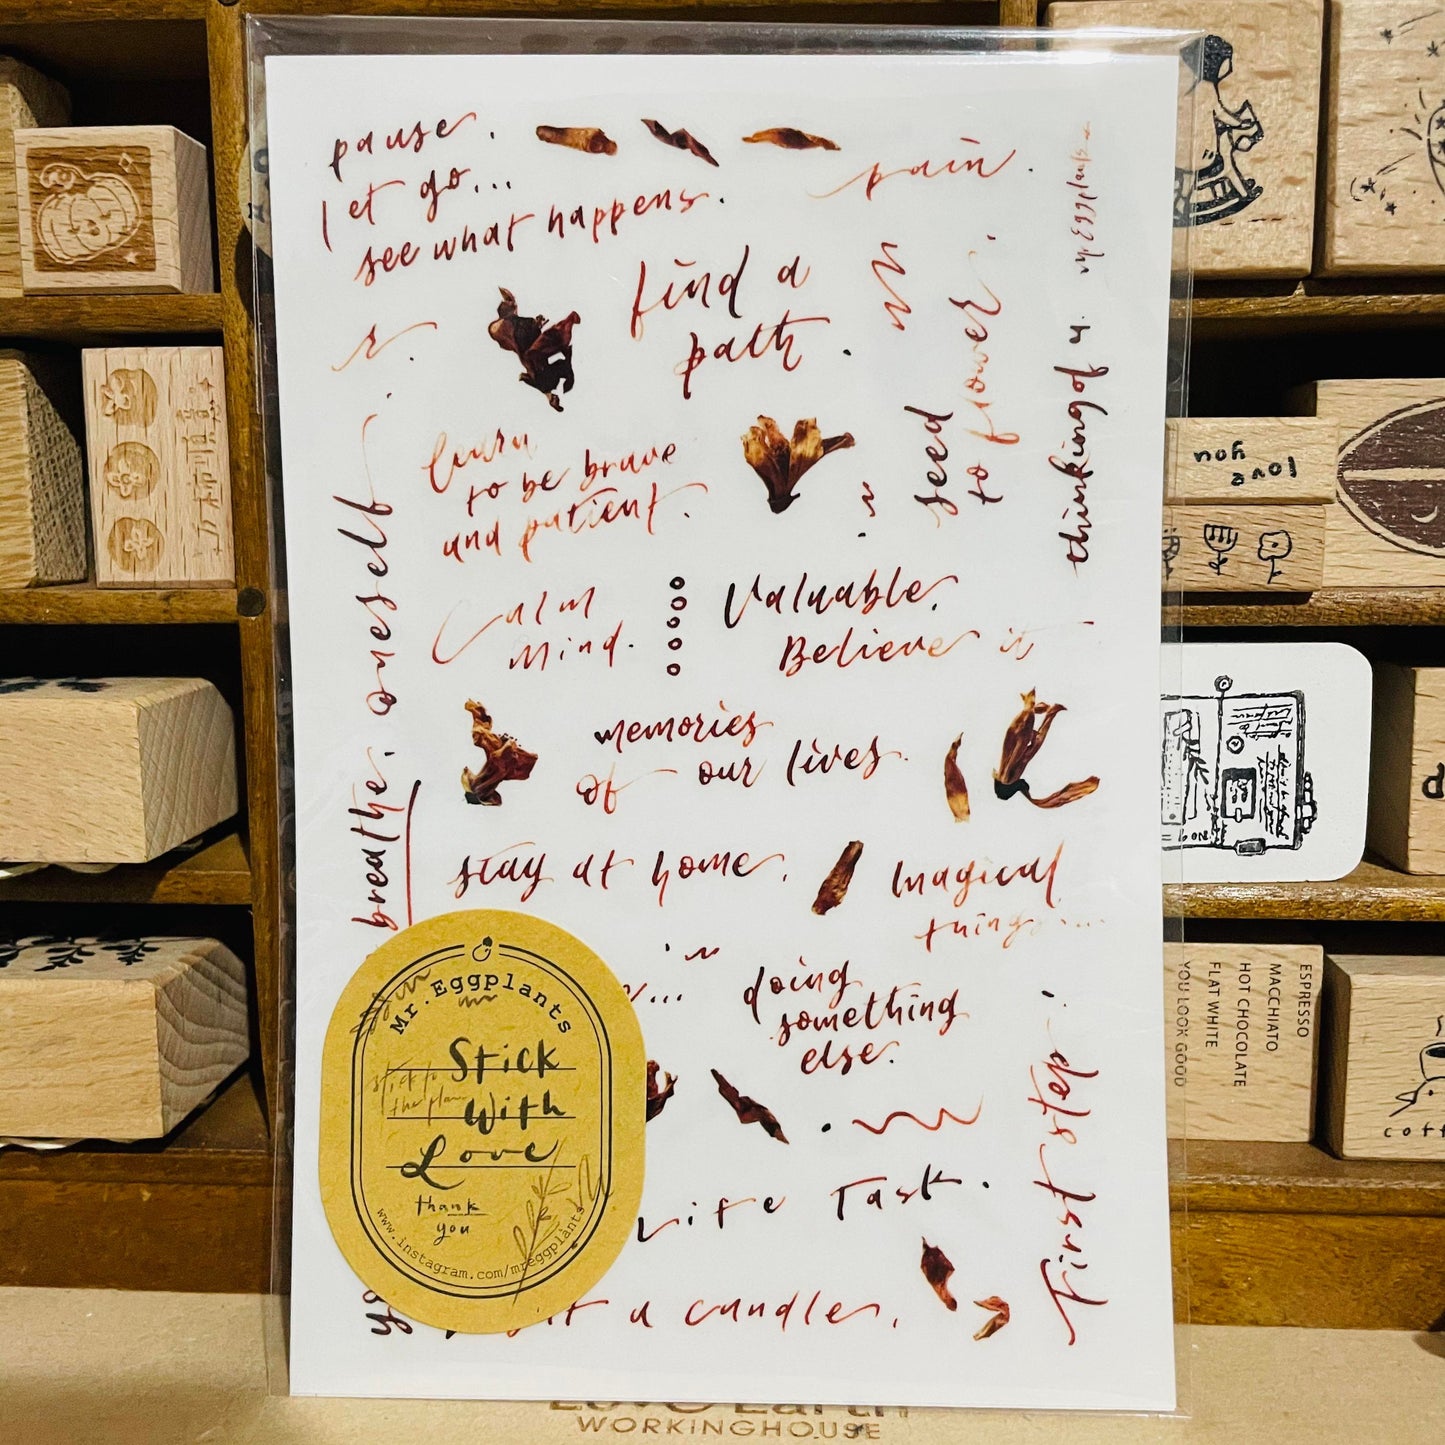 pause.
let go...
see what happens.
pain.
mr Eggplants
find a
path.
seed
to flower.
thinking of u.
learn
to be brave
and patient.
oneself.
breathe.
Calm
Mind.
Valuable.
Believe it
memories
of our lives.
stay at home.
magical
things....
doing
something
else.
First step.
Life Task.
a candle.
Mr. Eggplants
Stick
With
Love
stick to
the plan
thank
you
www.instagram.com/mreggplants
love
you
ESPRESSO
MACCHIATO
HOT CHOCOLATE
FLAT WHITE
YOU LOOK GOOD
Love Earth
WORKINGHOUSE